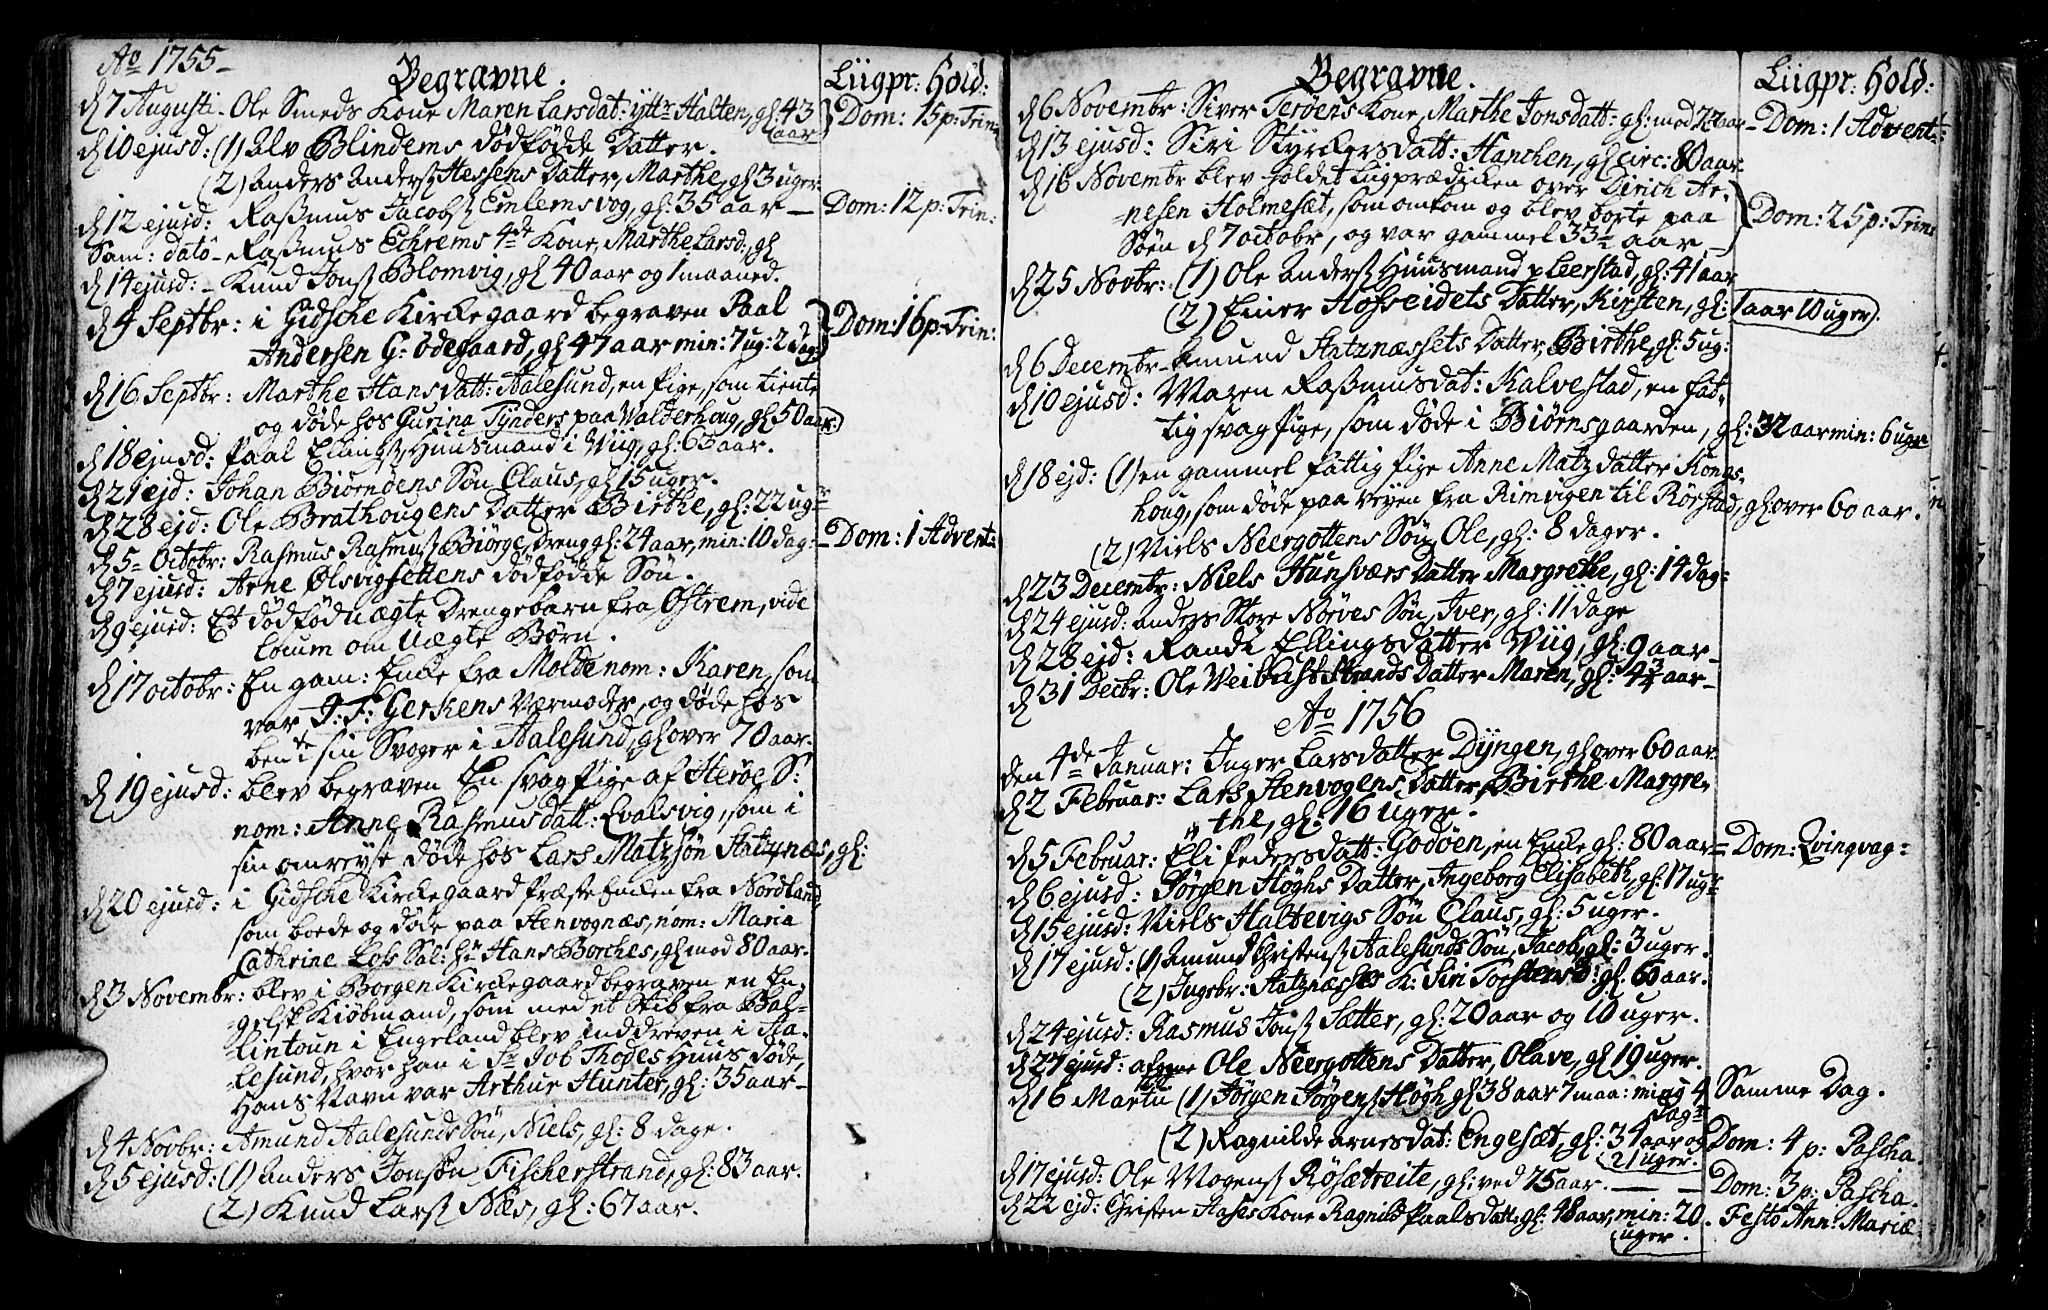 Ao 1755
Begravne.
Liigpr: Hold:
d 7 Augusti. Ole Smeds Kone Maren Larsdat: ytt: Halten, gl: 43 aar
Dom: 15 p: Trin:
d 10 ejusd: (1) Alv Blindems dødfødde Datter.
(2) Anders Anders Hessens Datter, Marthe, gl 3 uger.
d 12 ejusd: Rasmus Jacobs Emlemsvog, gl: 35 aar —
Dom: 12 p: Trin:
Sam: dato - Rasmus Echrems 4de Kone, Marthe Larsd:, gl
d 14 ejusd: - Knud Jons Blomvig, gl 40 aar og 1 maaned.
d 4 Septbr: i Gidsche Kirckegaard begraven Paal
Andersen G: Ødegaard, gl 47 aar min: 7 ug: 2 dag:
Dom: 16 p: Trin:
d 16 Septbr: Marthe Hansdatt: Aalesund, en Pige, som tiente
og døde hos Gurina Tÿnders paa Walderhoug, gl 50 aar
d 18 ejusd: Paal Elings, Huusmand i Viig, gl: 63 aar.
d 21 ejd: Johan Biørnøens Søn Claus, gl 15 uger.
d 28 ejd: Ole Brathougens Datter Birthe, gl: 22 ugr
d 5 Octobr: Rasmus Rasmus Biørge, Dreng gl: 24 aar, min: 10 dag:
Dom: 1 Advent:
d 7 ejusd: Arne Ølsvigsettens dødfødde Søn.
d 9 ejusd: Et dødfød uægte Drengebarn fra Østrem, vide
locum om Uægte Børn.
d 17 octobr: En gam: Encke fra Molde nom: Karen, som
var J: F: Gerkens Værmoder, og døde hos
bente sin Svoger i Aalesund, gl over 70 aar.
d 19 ejusd: blev begraven En svag Pige af Herøe S:
nom: Anne Rasmusdatt: Evalsvig, som i
sin omreyse døde hos Lars Matzsøn Hatznæs, gl:
d 20 ejusd: i Gidsche Kirckegaard Præste Encken fra Nordland
som boede og døde paa Stenvognæs, nom: Maria
Cathrine Sal: Hr Hans Borches, gl mod 80 aar.
d 3 Novembr: blev i Borgen Kirckegaard begraven en En-
gelsk Kiøbmand, som med et Skib fra Bal-
lintoun i Engeland blev inddreven i Aa-
lesund, hvor han i Sr Job Thodes Huus døde,
Hans Navn var Arthur Hunter, gl: 35 aar —
d 4 Novbr: Amund Aalesunds Søn, Niels, gl: 8 dage.
d 5 ejusd: (1) Anders Jonsøn Fischerstrand, gl: 83 aar.
(2) Knud Lars Næs, gl: 67 aar.
Begravne.
Liigpr: Hold:
d 6 Novembr: Siver Terøens Kone, Marthe Jonsdatt: gl: mod 72 aar
Dom: 1 Advent:
d 13 ejusd: Siri Styrckersdatt: Hanchen, gl circ: 80 aar
d 16 Novembr blev holdet Liigprædicken over Dirich Ar-
nesen Holmesæt, som omkom og blev borte paa
Søen d 7 octobr, og var gammel 33½ aar —
Dom: 25 p: Trin:
d 25 Novbr: (1) Ole Anders Huusmand p Leerstad, gl: 41 aar
(2) Einer Hofseidets Datter, Kirsten, gl: 1 aar 10 uger.
d 6 Decembr Amund Hatznæssets Datter, Birthe, gl: 5 ug:
d 10 ejusd: Maren Rasmusdat: Kalvestad, en fat-
tig svag Pige, som døde i Biørnsgaarden, gl: 32 aar min: 6 uger
d 18 ejd: (1) en gammel fattig Pige Anne Matzdatter Kongs-
houg, som døde paa Veyen fra Rimvigen til Rørstad, gl over 60 aar.
(2) Niels Neergottens Søn, Ole, gl: 8 dager.
d 23 Decembr: Niels Hunsværs Datter Margrethe, gl: 14 dag:
d 24 ejusd: Anders Store Nørves Søn, Iver, gl: 11 dage
d 28 ejd: Randi Ellingsdatter Wiig, gl: 9 aar —
d 31 Decbr: Ole Veibust Strands Datter Maren, gl: 4¾ aar —
Ao 1756
den 4de Januar: Inger Larsdatter Dÿngen, gl over 60 aar
d 2 Februar: Lars Stenvogens Datter, Birthe Margre-
the, gl: 16 uger.
d 5 Februar: Eli Pedersdatt: Godøen, en Encke gl: 80 aar
Dom: Qvinqvag:
d 6 ejusd: Jørgen Høghs Datter, Ingeborg Elisabeth, gl: 17 ugr
d 15 ejusd: Niels Haltevigs Søn Claus, gl: 5 uger.
d 17 ejusd: (1) Amund Christens Aalesunds Søn, Jacob, gl: 3 uger.
(2) Ingebr: Hatznæsses K: Siri Torstensd: gl: 60 aar.
d 24 ejusd: Rasmus Jons Sætter, gl: 20 aar og 10 uger.
d 27 ejusd: Ole Neergottens Datter, Olave, gl 19 uger.
d 16 Martii (1) Jørgen Jørgens Høgh gl 38 aar 7 maa: ming 4 Dagr
Samme Dag.
(2) Ragnilde Arnesdat: Engesæt, gl: 34 aar og 21 uger.
Dom: 4 p: Pascha.
d 17 ejusd: Ole Mogens Røsætreite, gl: ved 75 aar. —
Dom: 3 p: Pascha.
d 22 ejd: Christen Hases Kone Ragnild Paalsdatt: gl: 48 aar, min: 20 uger.
Festo Ann: Mariæ